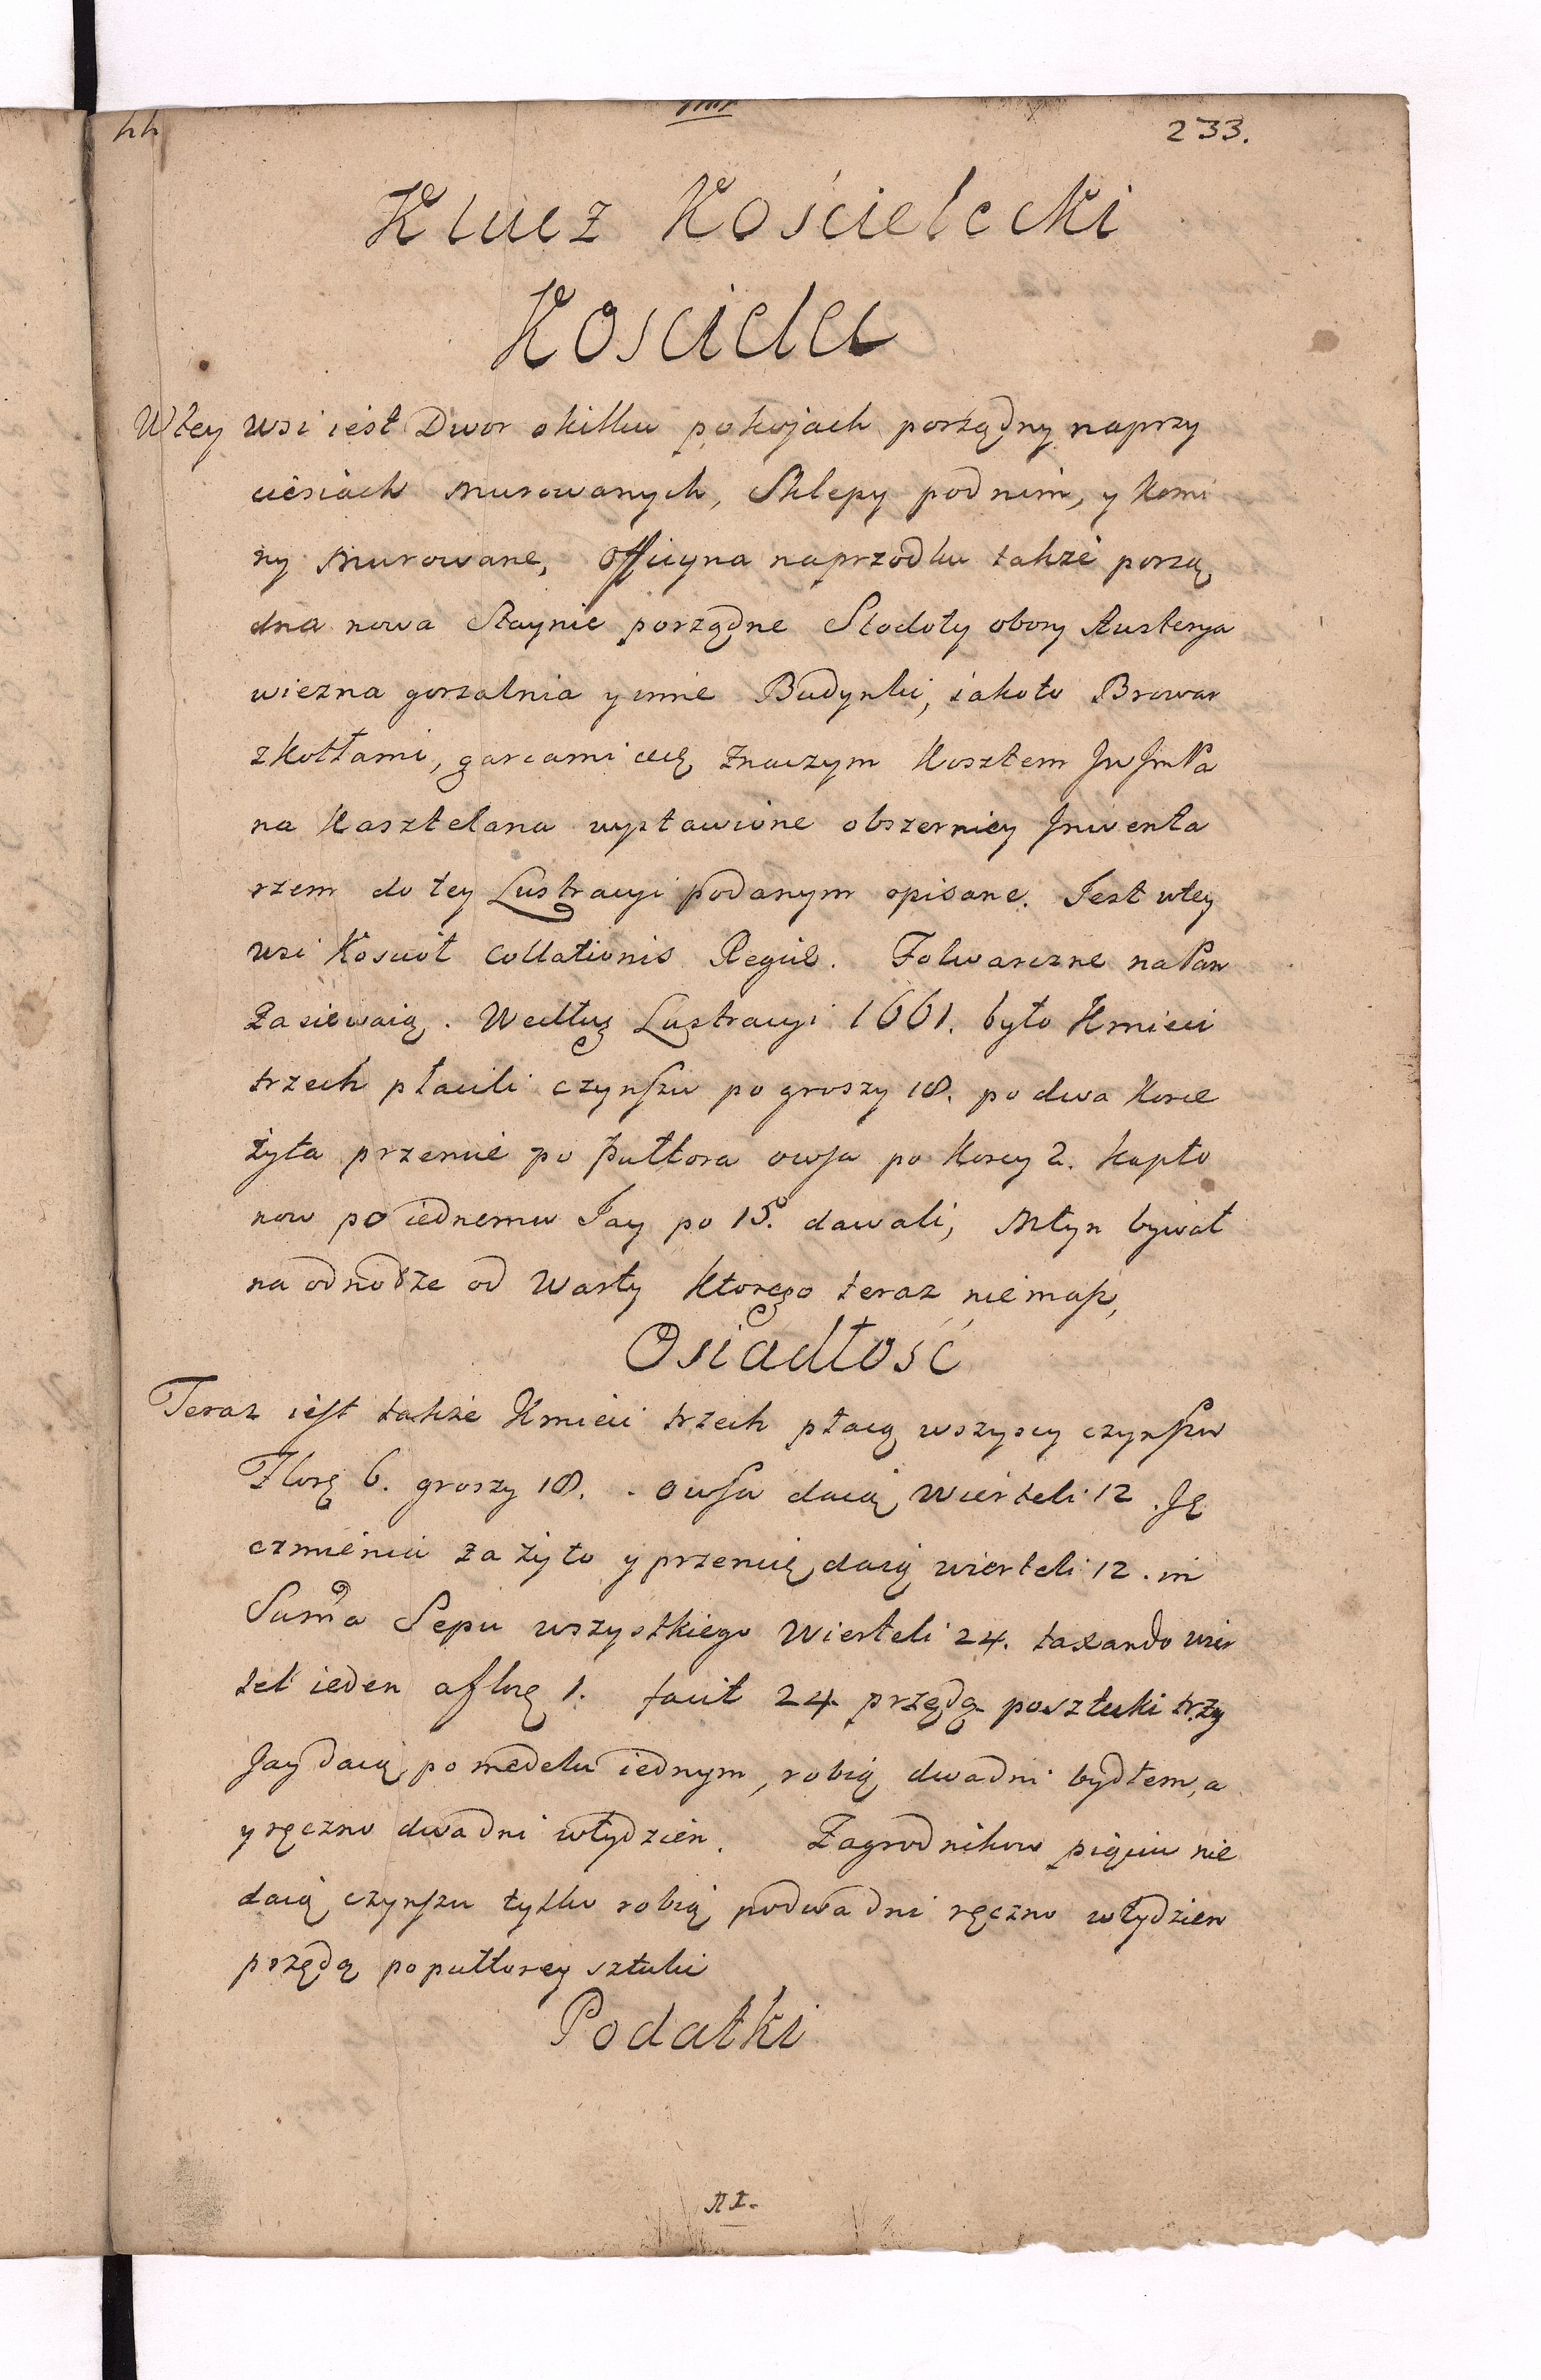 233.
Klucz Kościelecki
Kościelec
W tey wsi iest Dwor o kilku pokojach porządny na przy
ciesiach murowanych, Sklepy pod nim, y komi
ny murowane, Officyna na przodku także porzą
dna nowa Staynie porządne Stodoły obory Austerya
wiezna gorzalnia y inne Budynki, iako to Browar
z kotłami, garcami etc znacznym kosztem Jw Jm Pa
na Kasztelana wystawione obszerniey Inwenta
rzem do tey Lustracyi podanym opisane. Jest w tey
wsi Kosciół Collationis Regiæ. Folwarczne na Pan
zasiewaią. Według Lustracyi 1661. było Kmieci
trzech płacili czynszu po groszy 18. po dwa Korce
żyta przenice po pułtora owsa po Korcy 2. kapło
now po iednemu Jay po 15. dawali, Młyn bywał
na odnodze od Warty ktorego teraz niemasz,
Osiadłość
Teraz iest także Kmieci trzech płacą wszyscy czynszu
Florę 6. groszy 18. owsa daią Wierteli 12. Ję
czmienia za żyto y przenicę daią wierteli 12. in
Summa Sepu wszystkiego Wierteli 24. taxando wier
tel ieden a florę 1. facit 24 przędą po sztuki trzy
Jay daią po mędelu iednym, robią dwa dni bydłem, a
y ręczno dwa dni w tydzien. Zagrodnikow pięciu nie
daią czynszu tylko robią po dwa dni ręczno w tydzien
przędą po pułtorey sztuki
Podatki